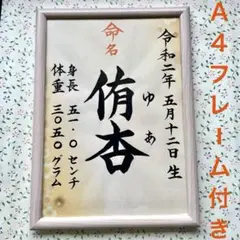 令和二年 五月十二日 生
命名
侑杏
ゆあ
身長 五一.〇 センチ
体重 三〇五〇 グラム
A4フレーム付き